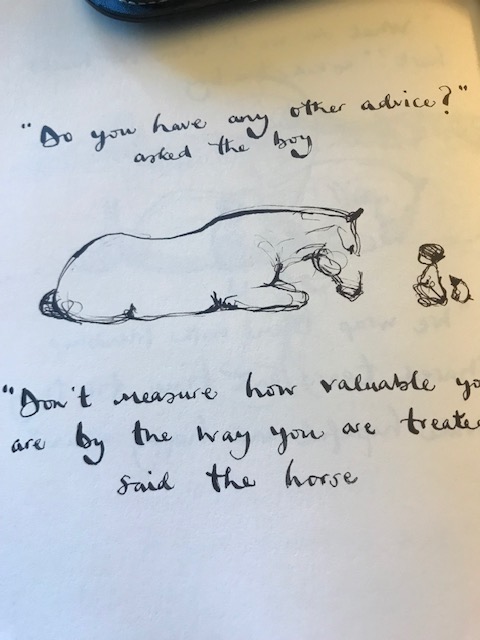 "Do you have any other advice?"
asked the boy
"Don't measure how valuable yo
are by the way you are treate
said the horse